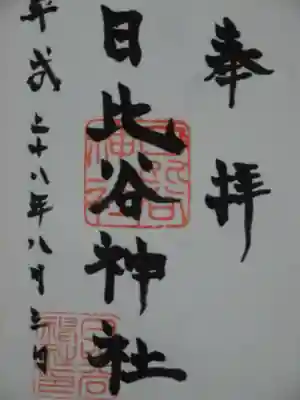 奉拝
日比谷神社
平成二十八年八月三日